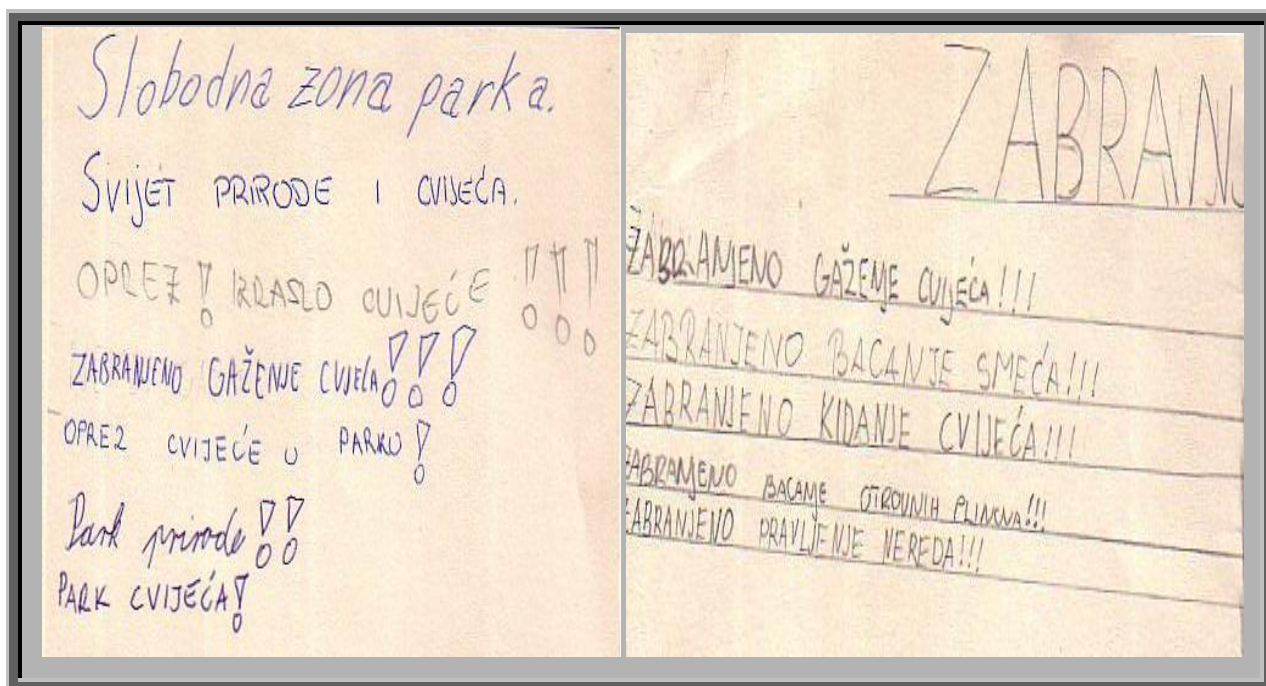 Slobodna zona parka.
SVIJET PRIRODE I CVIJEĆA.
OPREZ! IZRASLO CVIJEĆE!!!
ZABRANJENO GAŽENJE CVIJEĆA!!!
OPREZ CVIJEĆE U PARKU!
Park prirode!!
PARK CVIJEĆA!
ZABRANJ
ZABRANJENO GAŽENJE CVIJEĆA!!!
ZABRANJENO BACANJE SMEĆA!!!
ZABRANJENO KIDANJE CVIJEĆA!!!
ZABRANJENO BACANJE OTROVNIH PLINOVA!!!
ZABRANJENO PRAVLJENJE NEREDA!!!